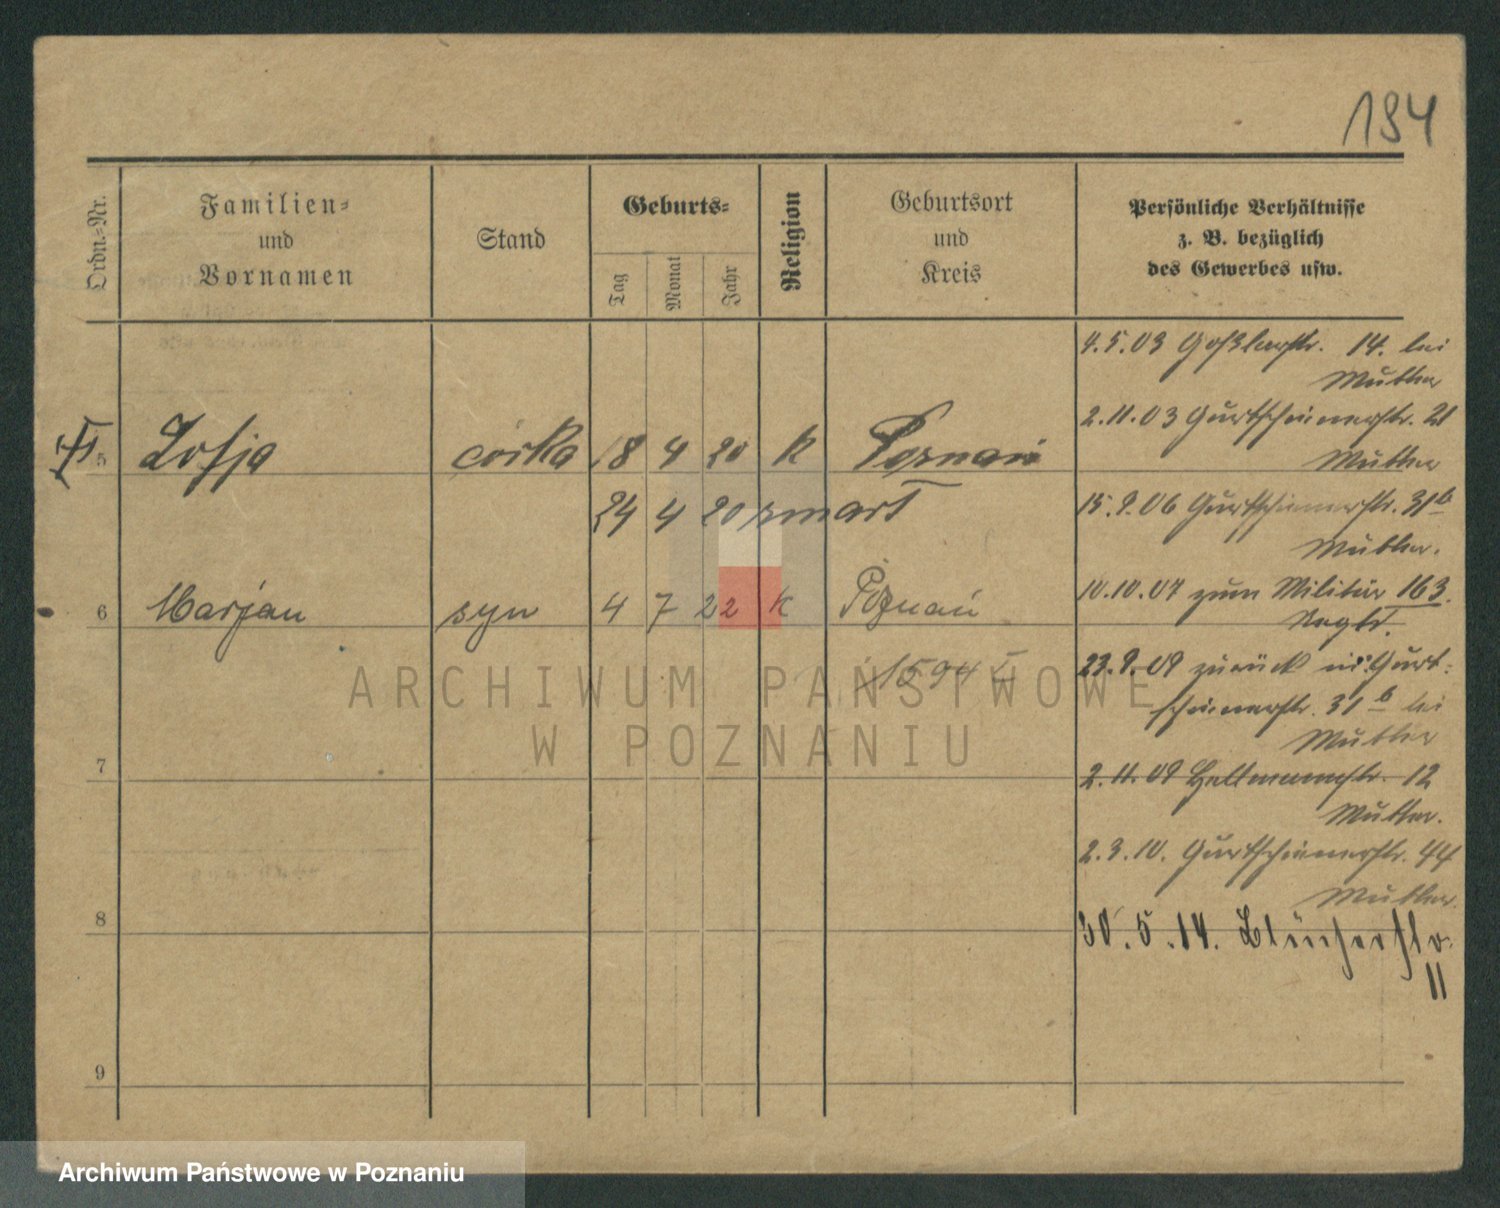 194
Ordn.-Nr.
Familien-
und
Vornamen
Stand
Geburts-
Tag
Monat
Jahr
Religion
Geburtsort
und
Kreis
Persönliche Verhältnisse
z. B. bezüglich
des Gewerbes usw.
5 Zofja córka 18 4 20 K Poznań
24 4 20 zmarł
6 Marjan syn 4 7 22 K Poznań
1594
7
8
9
4.5.03 Goßlerstr. 14. bei
Mutter
2.11.03 Gurtschinerstr. 21
Mutter
15.9.06 Gurtschinerstr. 31b
Mutter.
10.10.07 zum Militär 163.
Regt.
23.9.09 zurück Gurt-
schinerstr. 31b bei
Mutter
2.11.09 12
Mutter.
2.3.10. Gurtschinerstr. 44
Mutter.
30.5.14. Blücherstr.
11
ARCHIWUM PAŃSTWOWE
W POZNANIU
Archiwum Państwowe w Poznaniu